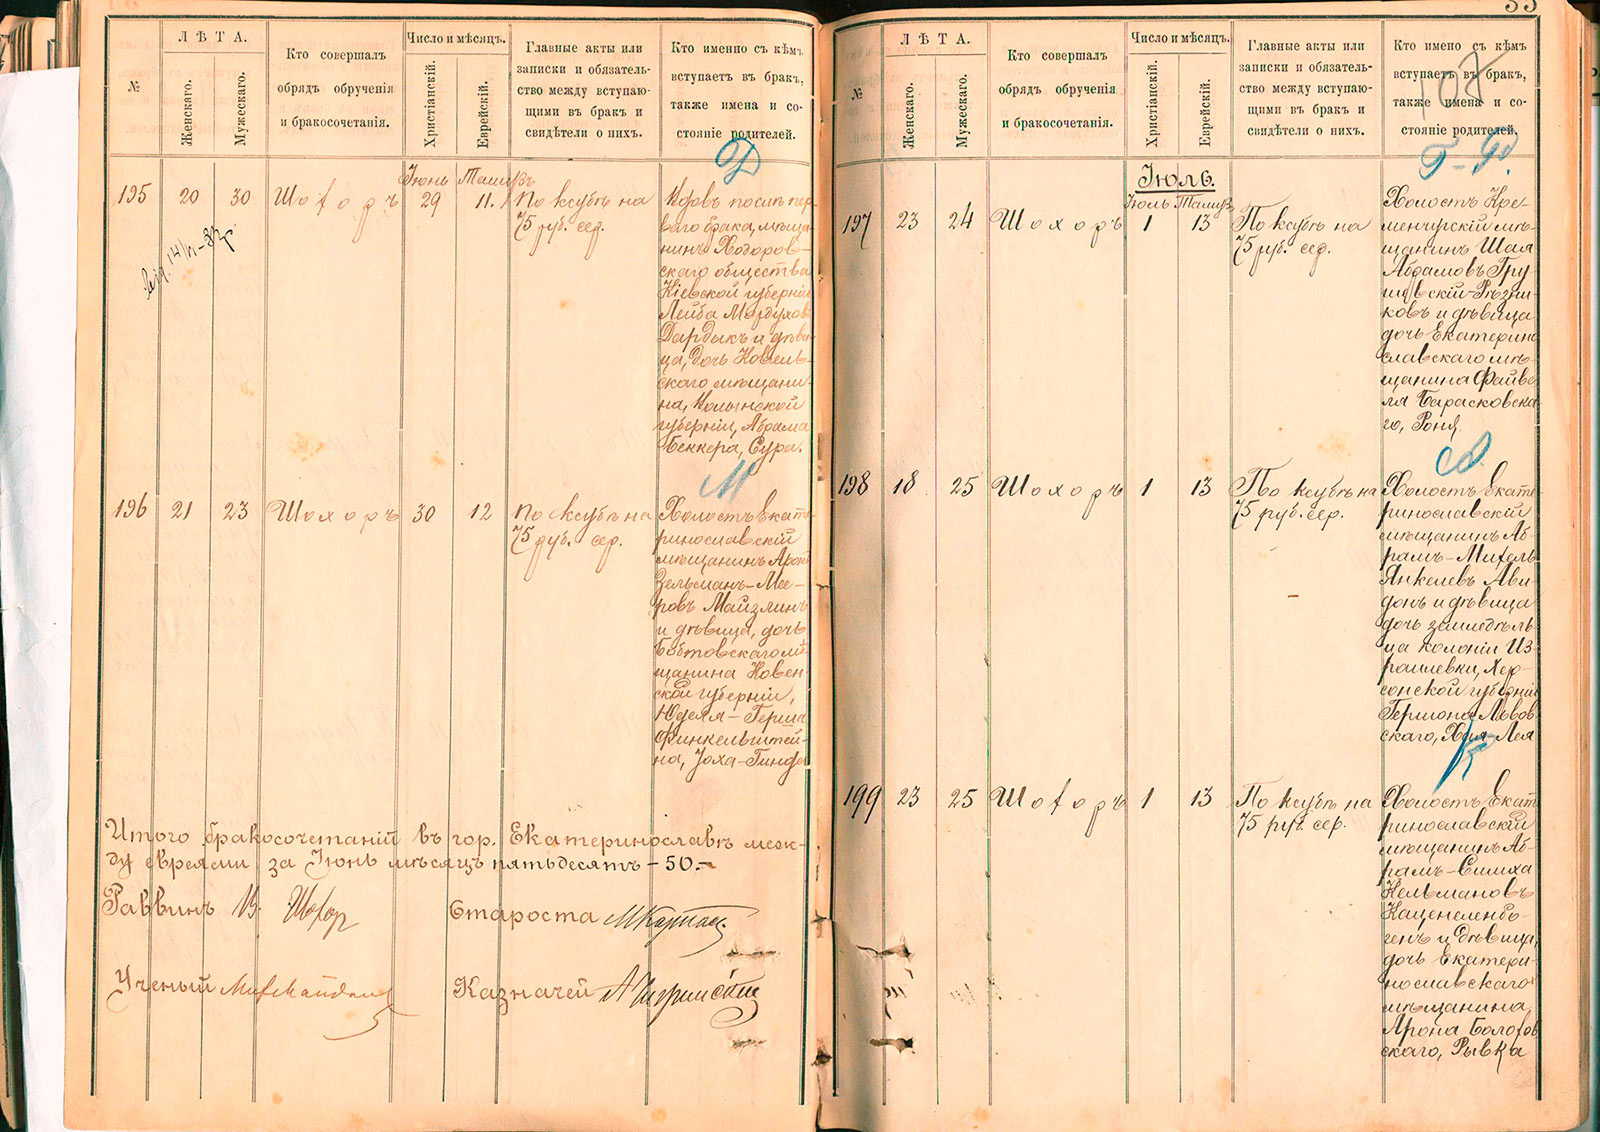 №
ЛѢТА.
Женскаго.
Мужескаго.
Кто совершалъ
обрядъ обрученія
и бракосочетанія.
Число и мѣсяцъ.
Христіанскій.
Еврейскій.
Главные акты или
записки и обязатель-
ство между вступаю-
щими въ бракъ и
свидѣтели о нихъ.
Кто именно съ кѣмъ
вступаетъ въ бракъ,
также имена и со-
стояніе родителей.
Д
Іюнь Тамизъ
195 20 30 Шохоръ 29 11. По ксубѣ на
75 руб. сер.
Вдовъ послѣ пер-
ваго брака, мѣща-
нинъ Ходоров-
скаго общества
Кіевской губерніи
Лейба Мордухов
Дардыкъ и дѣви-
ца, дочь Ковель-
скаго мѣщани-
на, Волынской
губерніи, Абрама
Беккера, Сура.
М
196 21 23 Шохоръ 30 12 По ксубѣ на
75 руб. сер.
Холостъ Екате-
ринославскій
мѣщанинъ Арон
Зельманъ-Мее-
ровъ Майзлинъ
и дѣвица, дочь
мѣ-
щанина Ковен-
ской губерніи,
Юделя-Герша
Финкельштей-
на, Хоха-Гинда
Итого бракосочетаній въ гор. Екатеринославѣ меж-
ду евреями за Іюнь мѣсяцъ пятьдесятъ - 50.-
Раввинъ В. Шохор
Староста
Ученый
Казначей
33
№
ЛѢТА.
Женскаго.
Мужескаго.
Кто совершалъ
обрядъ обрученія
и бракосочетанія.
Число и мѣсяцъ.
Христіанскій.
Еврейскій.
Главные акты или
записки и обязатель-
ство между вступаю-
щими въ бракъ и
свидѣтели о нихъ.
Кто имено съ кѣмъ
вступаетъ въ бракъ,
также имена и со-
стояніе родителей.
107
Іюль.
Іюль Тамизъ
197 23 24 Шохоръ 1 13 По ксубѣ на
75 руб. сер.
Холостъ Кре-
менчугскій мѣ-
щанинъ Шая
Абрамовъ Гру-
шевскій-Рѣзни-
ковъ и дѣвица
дочь Екатерино
славскаго мѣ-
щанина Файве-
ля Барасковска-
го, Роня.
А
198 18 25 Шохоръ 1 13 По ксубѣ на
75 руб. сер.
Холостъ Екате-
ринославскій
мѣщанинъ Аб-
рамъ-Михель
Янкелевъ Ави-
донъ и дѣвица
дочь земледѣль-
ца колоніи Из-
раилевки, Хер-
сонской губерніи
Гершона Львов-
скаго, Хая-Лея
К
199 23 25 Шохоръ 1 13 По ксубѣ на
75 руб. сер.
Холостъ Екат
ринославскій
мѣщанинъ Аб-
рамъ-Симха
Кельмановъ
Каценеленбо-
генъ и дѣвица,
дочь Екатери-
нославскаго
мѣщанина
Арона Болотов
скаго, Рывка